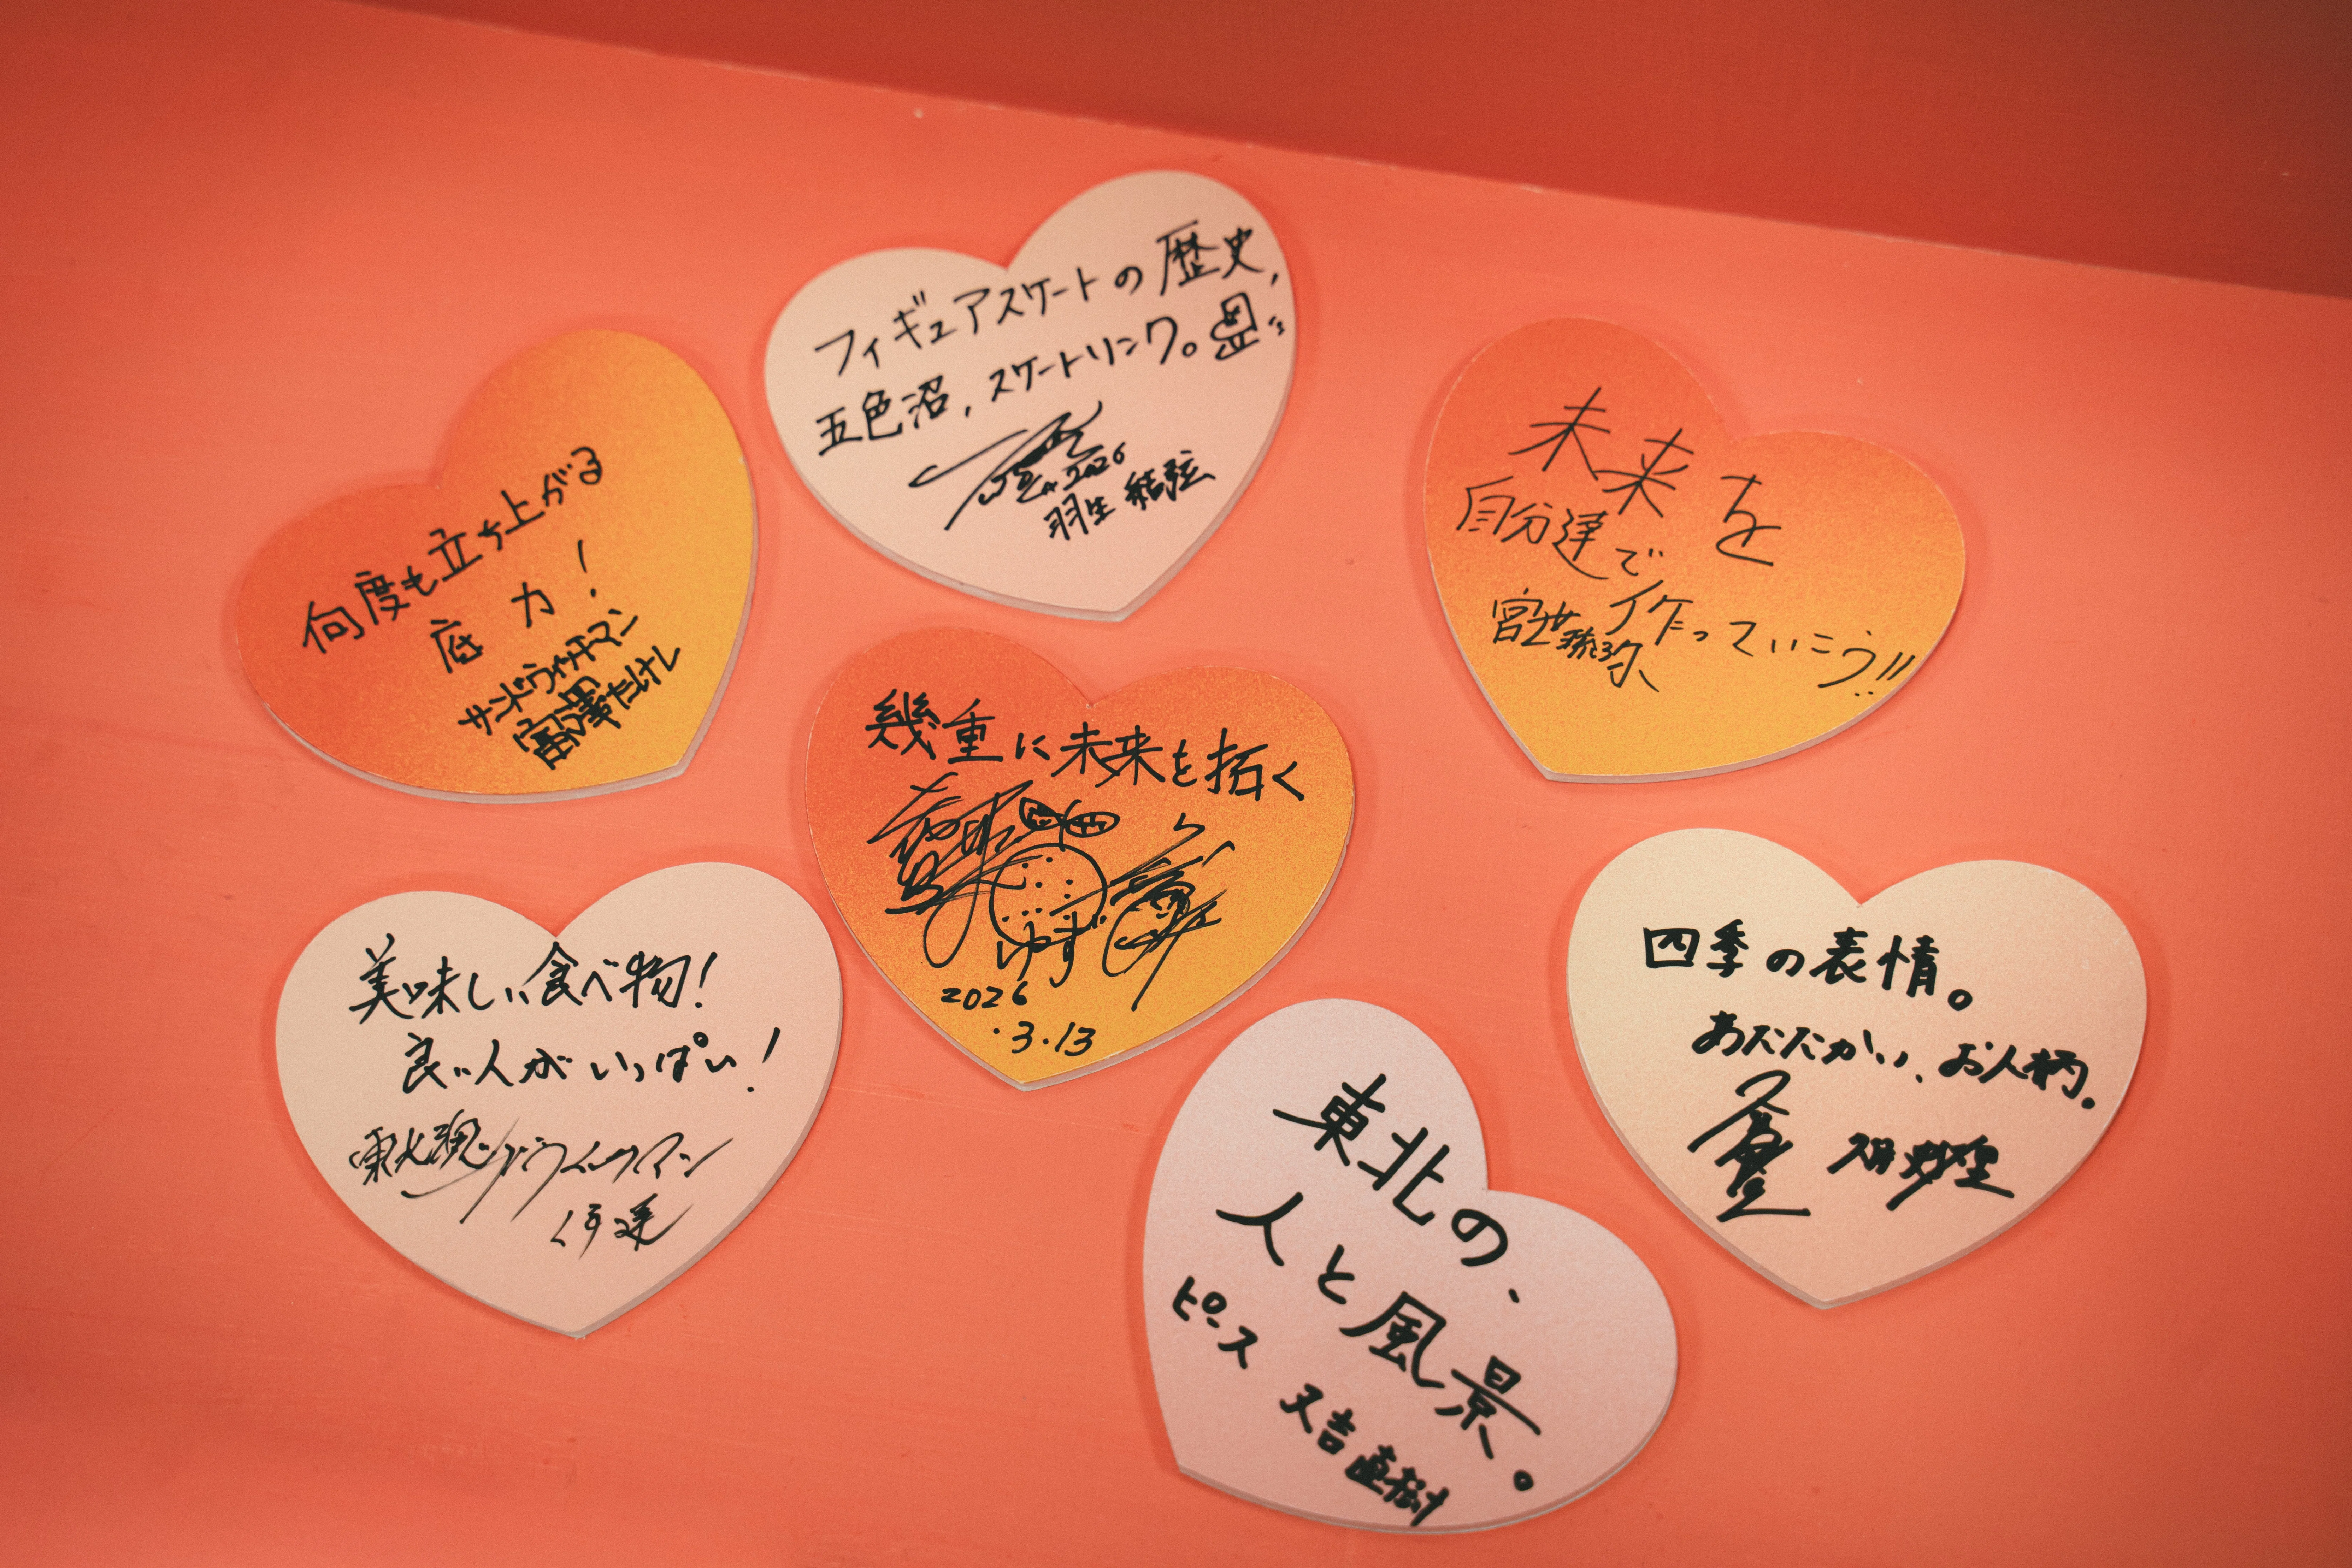 フィギュアスケートの歴史,
五色沼,スケートリンク。
2026
羽生結弦
何度も立ち上がる
底力!
サンドウィッチマン
富澤たけし
未来を
自分達で
作っていこう!!
幾重に未来を拓く
ゆず
2026
.3.13
美味しい食べ物!
良い人がいっぱい!
東北魂
サンドウィッチマン
伊達
四季の表情。
あたたかい、お人柄。
東北の、
人と風景。
ピース
又吉直樹